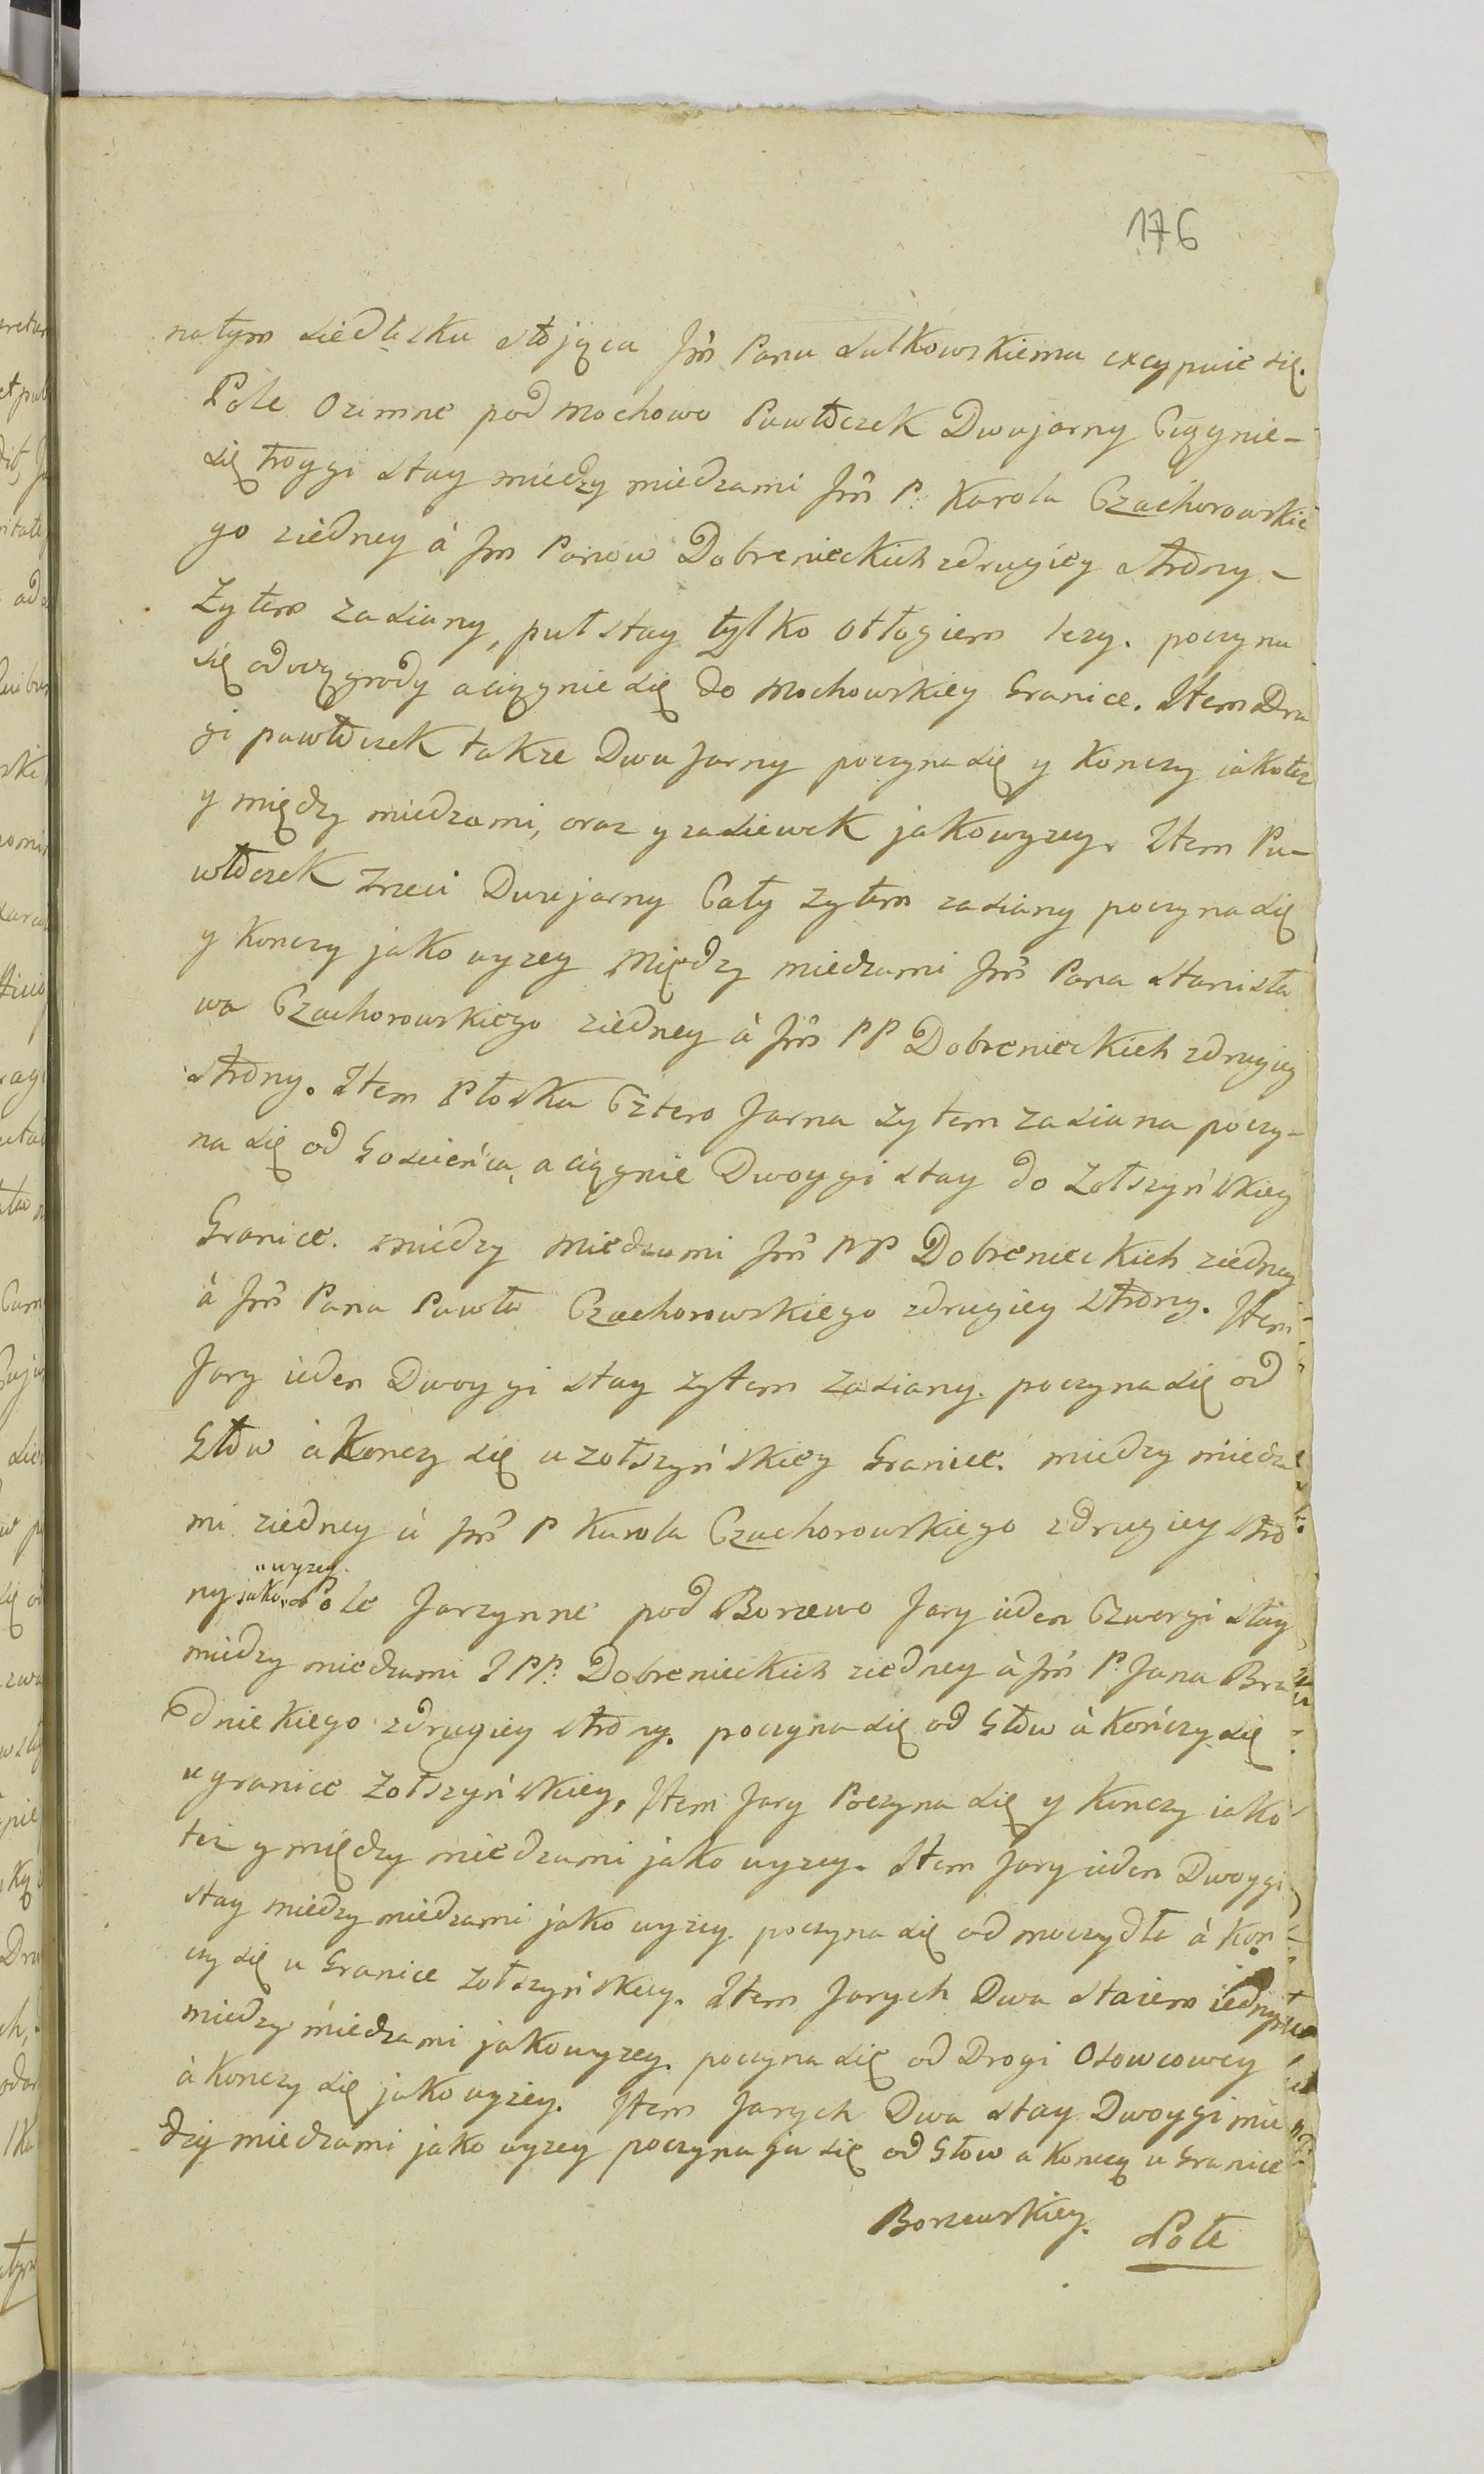 176
natym siedlisku stojąca Jm Panu Sulkowskiemu excypuie się.
Pole Ozimne pod Mochowo Pawłoczek Dwujarny Ciągnie-
się troygi stay miedzy miedzami Jm P. Karola Czachorowskie
go ziedney á Jm Panow Dobrenieckich zdrugiey strony -
Zytem zasiany, puł stay tylko obłogiem lezy. poczyna
się od wygrody a ciągnie się do Mochowskiey Granice. Item Dru
gi pawłoczek takze Dwu Jarny poczyna się y Konczy iakotez
y między miedzami, oraz y zasiewek jakowyzey. Item Pa-
włoczek Trzeci Dwujarny Cały zytem zasiany poczyna się
y Konczy jako wyzey Między miedzami Jm Pana Stanisła
wa Czachorowskiego ziedney á Jm PP Dobrenieckich zdrugiey
strony. Item Płoska Cztero Jarna zytem zasiana poczy-
na się od Gościeńca, a ciągnie Dwoygi stay do Zołszyńskiey
Granice. miedzy miedzami Jm PP Dobrenieckich ziedney
á Jm Pana Pawła Czachorowskiego zdrugiey strony. Item
Jary ieden Dwoygi stay zytem zasiany. poczyna się od
Głow á Konczy się u Zołszyńskiey Granice. miedzy miedza
mi ziedney á Jm P Karola Czachorowskiego zdrugiey stro
ny jako wyzey. Pole Jarzynne pod Borzewo Jary ieden Czworgi stay
miedzy miedzami JPP. Dobrenieckich ziedney á Jm P. Jana Bro
dnickiego zdrugiey strony. poczyna się od Głow á Kończy się
u granice Zołszyńskiey, Item Jary Poczyna się y Konczy iako
tez y między miedzami jako wyzey. Item Jary ieden Dwoygi
stay miedzy miedzami jako wyzey. poczyna się od moczydła á Kon
czy się u Granice Zołszyńskiey. Item Jarych Dwa Staiem iednym
miedzy miedzami jakowyzey. poczyna się od Drogi Osowcowey
á Konczy się jako wyzey. Item Jarych Dwa stay Dwoygi mie
dzy miedzami jako wyzey poczynają się od Głow a Konczą u Granice
Borzewskiey.
Pole